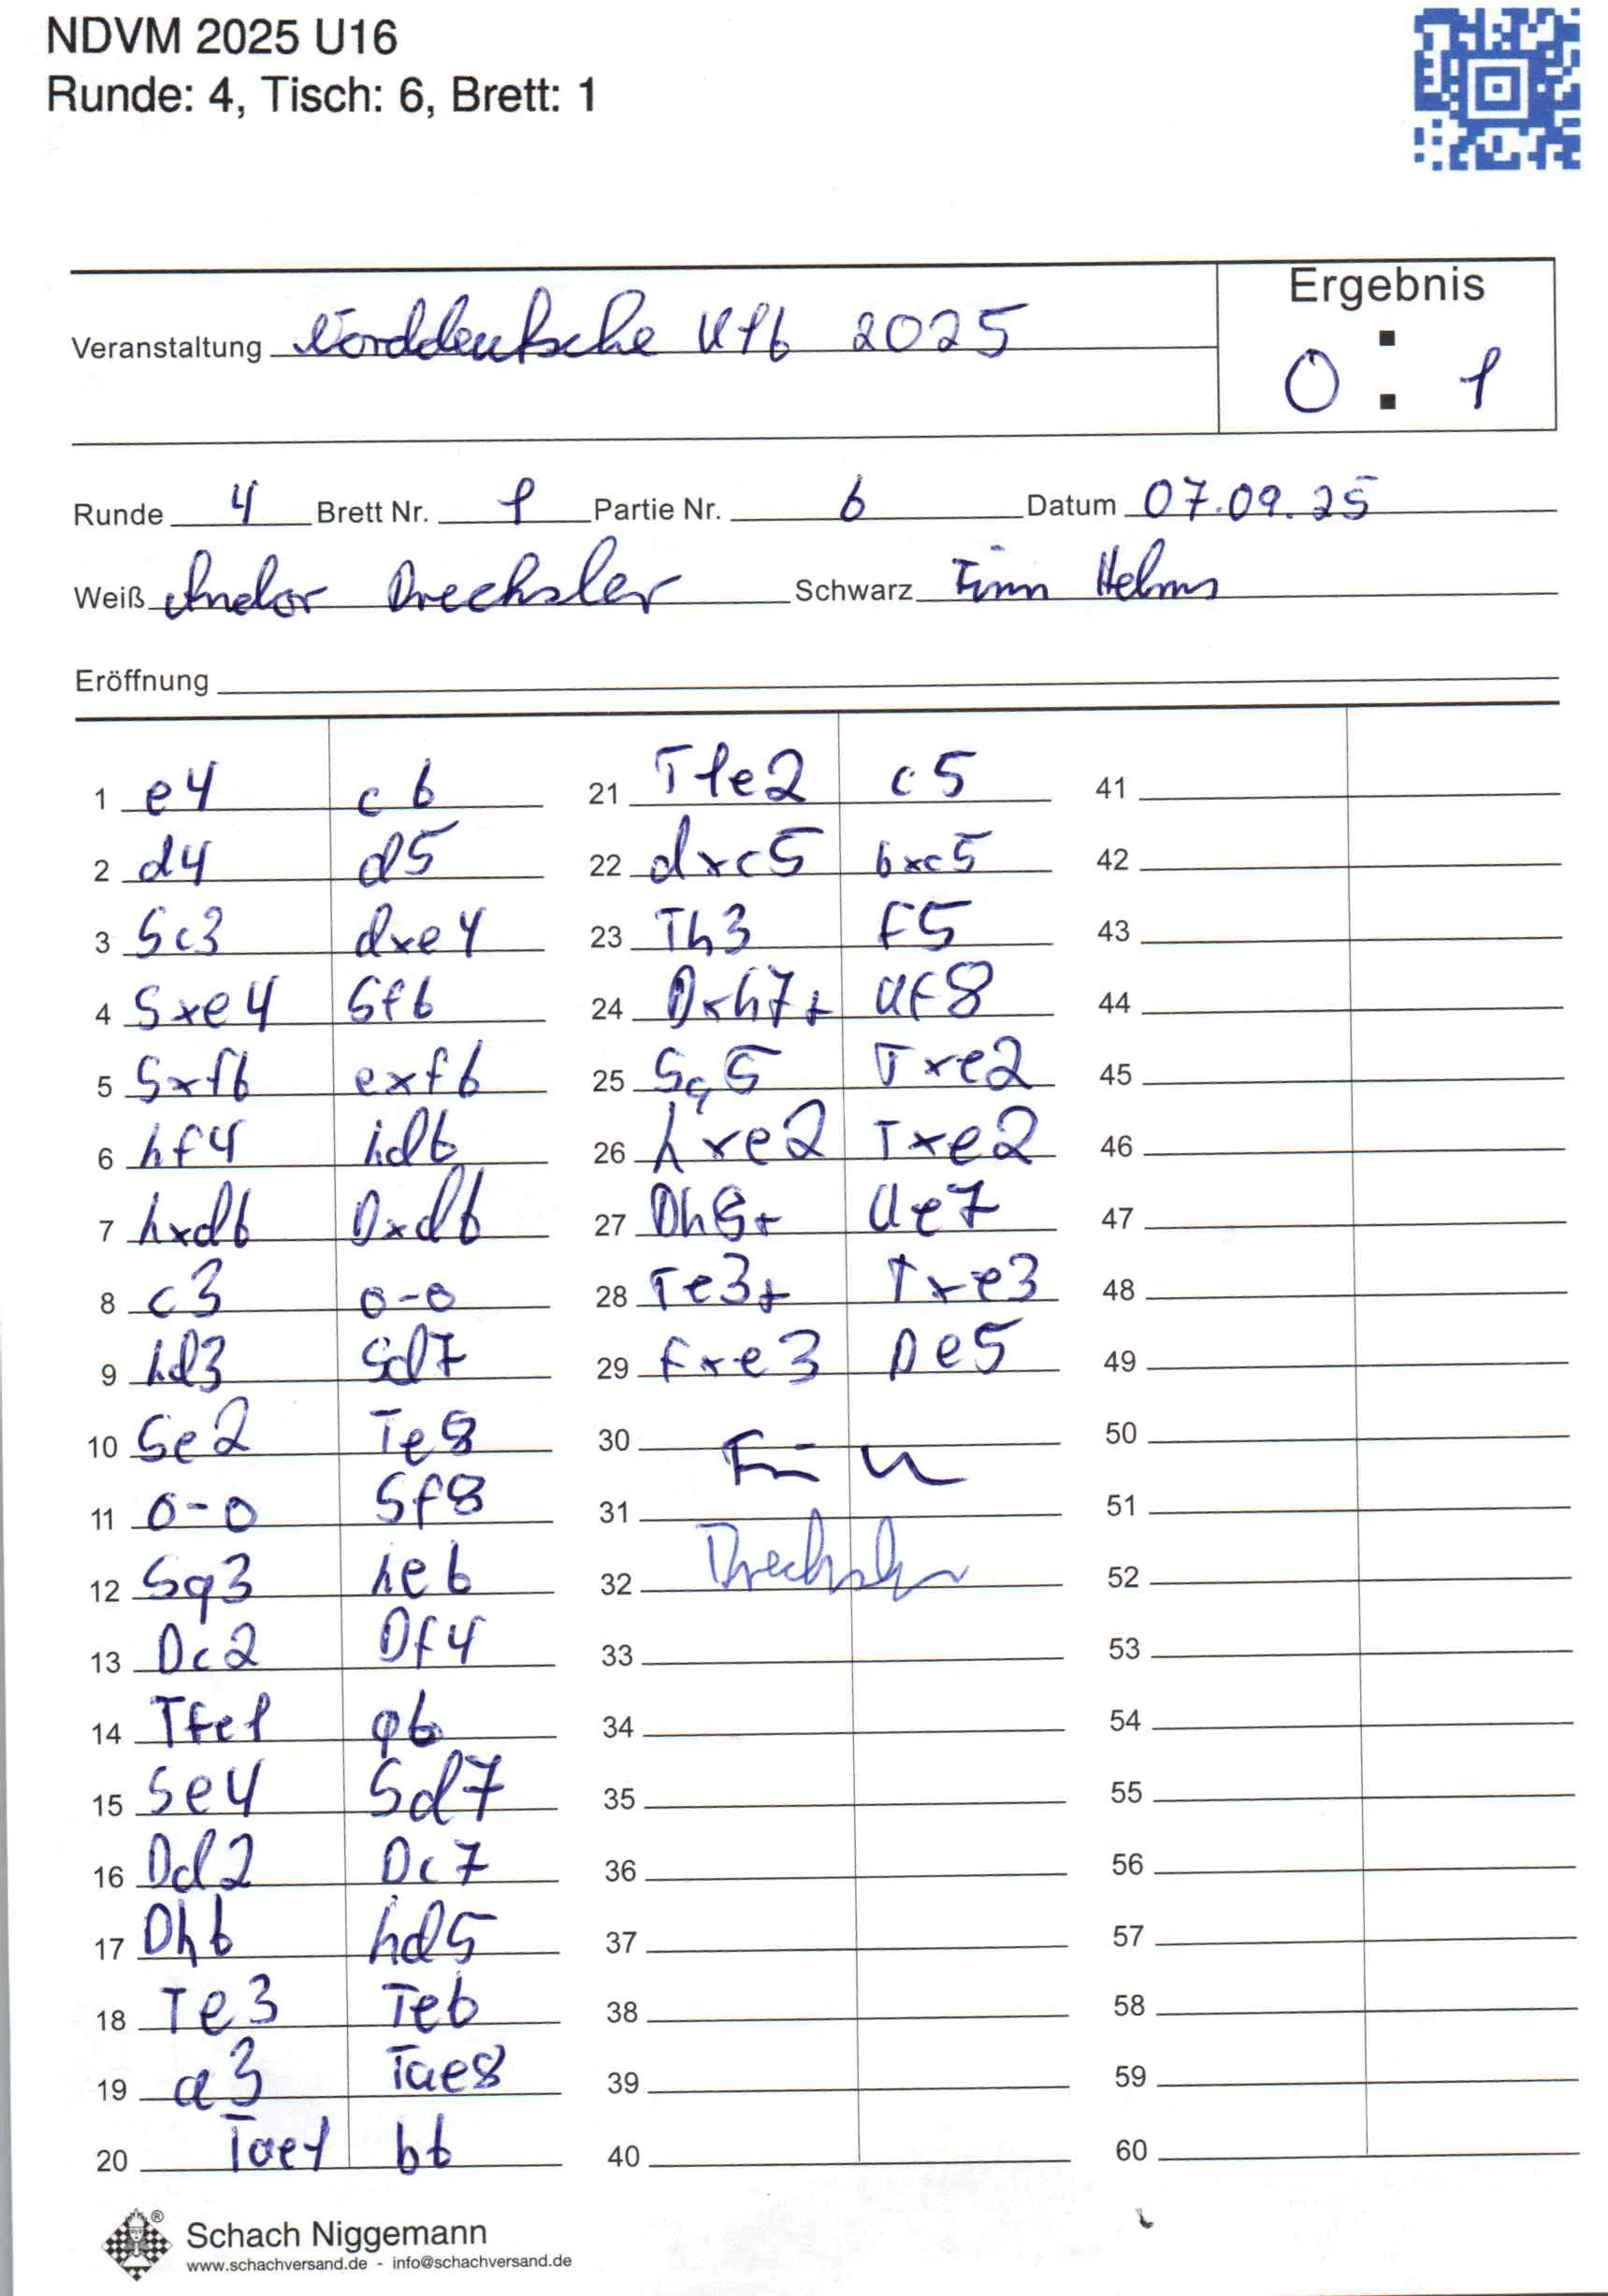 NDVM 2025 U16
Runde: 4, Tisch: 6, Brett: 1
Ergebnis
Veranstaltung Norddeutsche U16 2025
0 : 1
Runde 4 Brett Nr. 1 Partie Nr. 6 Datum 07.09.25
Weiß Andor Drechsler Schwarz Finn Helms
Eröffnung
1 e4 c6
2 d4 d5
3 Sc3 dxe4
4 Sxe4 Sf6
5 Sxf6 exf6
6 hf4 hd6
7 hxd6 Dxd6
8 c3 0-0
9 hd3 Sd7
10 Se2 Te8
11 0-0 Sf8
12 Sg3 he6
13 Dc2 Df4
14 Tfe1 g6
15 Se4 Sd7
16 Dd2 Dc7
17 Dh6 hd5
18 Te3 Te6
19 a3 Tae8
20 Tae1 b6
21 T1e2 c5
22 dxc5 bxc5
23 Th3 f5
24 Dxh7+ Uf8
25 Sg5 Txe2
26 hxe2 Txe2
27 Dh8+ Ue7
28 Te3+ Txe3
29 fxe3 De5
30
31
32 Drechsler
33
34
35
36
37
38
39
40
41
42
43
44
45
46
47
48
49
50
51
52
53
54
55
56
57
58
59
60
Schach Niggemann
www.schachversand.de - info@schachversand.de